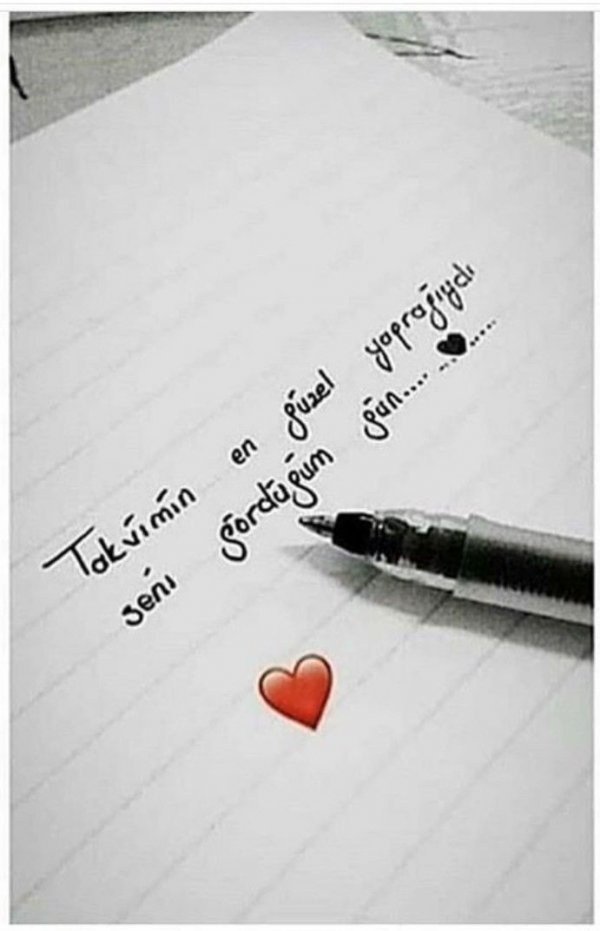 Takvimin en güzel yaprağıydı
seni gördüğüm gün.... ♥.....